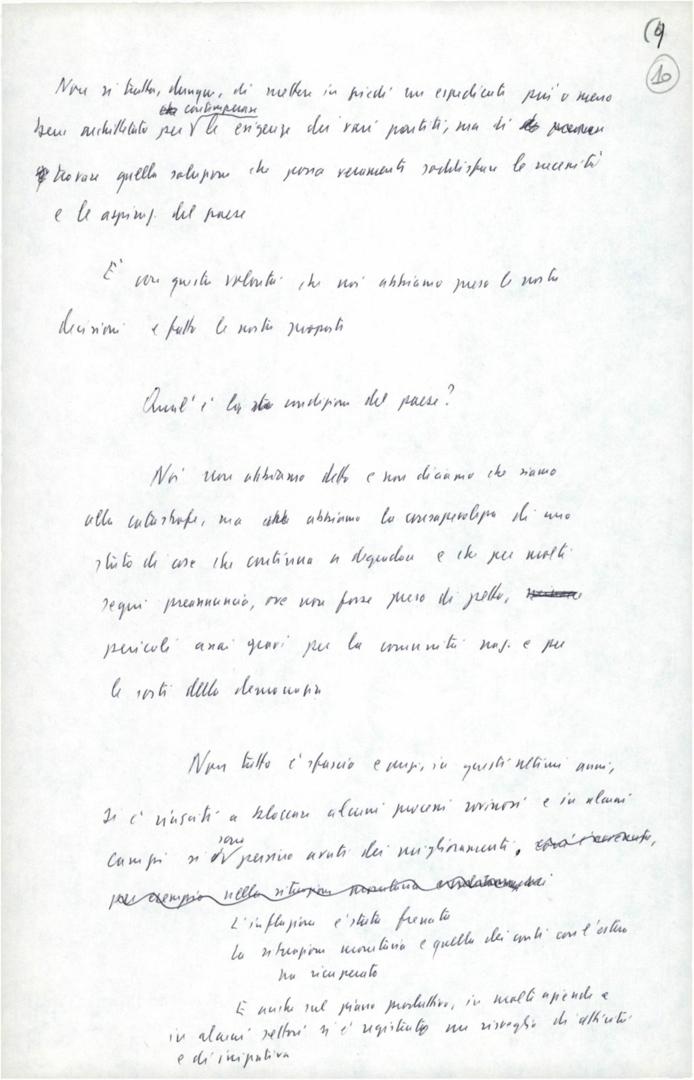 10
Non si tratta, dunque, di mettere in piedi un espediente più o meno
contemperare
bene architettato per le esigenze dei vari partiti, ma di
trovare quella soluzione che possa veramente soddisfare le necessità
e le aspiraz. del paese
È con questa volontà che noi abbiamo preso le nostre
decisioni e fatto le nostre proposte
Qual'è la condizione del paese?
Noi non abbiamo detto e non diciamo che siamo
alla catastrofe, ma abbiamo la consapevolezza di uno
stato di cose che continua a degradare e che per molti
segni preannuncia, ove non fosse preso di petto,
pericoli assai gravi per la comunità naz. e per
le sorti della democrazia
Non tutto è sfascio e anzi, in questi ultimi anni,
si è riusciti a bloccare alcuni processi rovinosi e in alcuni
sono
campi si persino avuti dei miglioramenti.
per esempio nella situazione monetaria
L'inflazione è stata frenata
La situazione monetaria e quella dei conti con l'estero
ha recuperato
E anche sul piano produttivo, in molte aziende e
in alcuni settori si è registrato un risveglio di attività
e di iniziativa